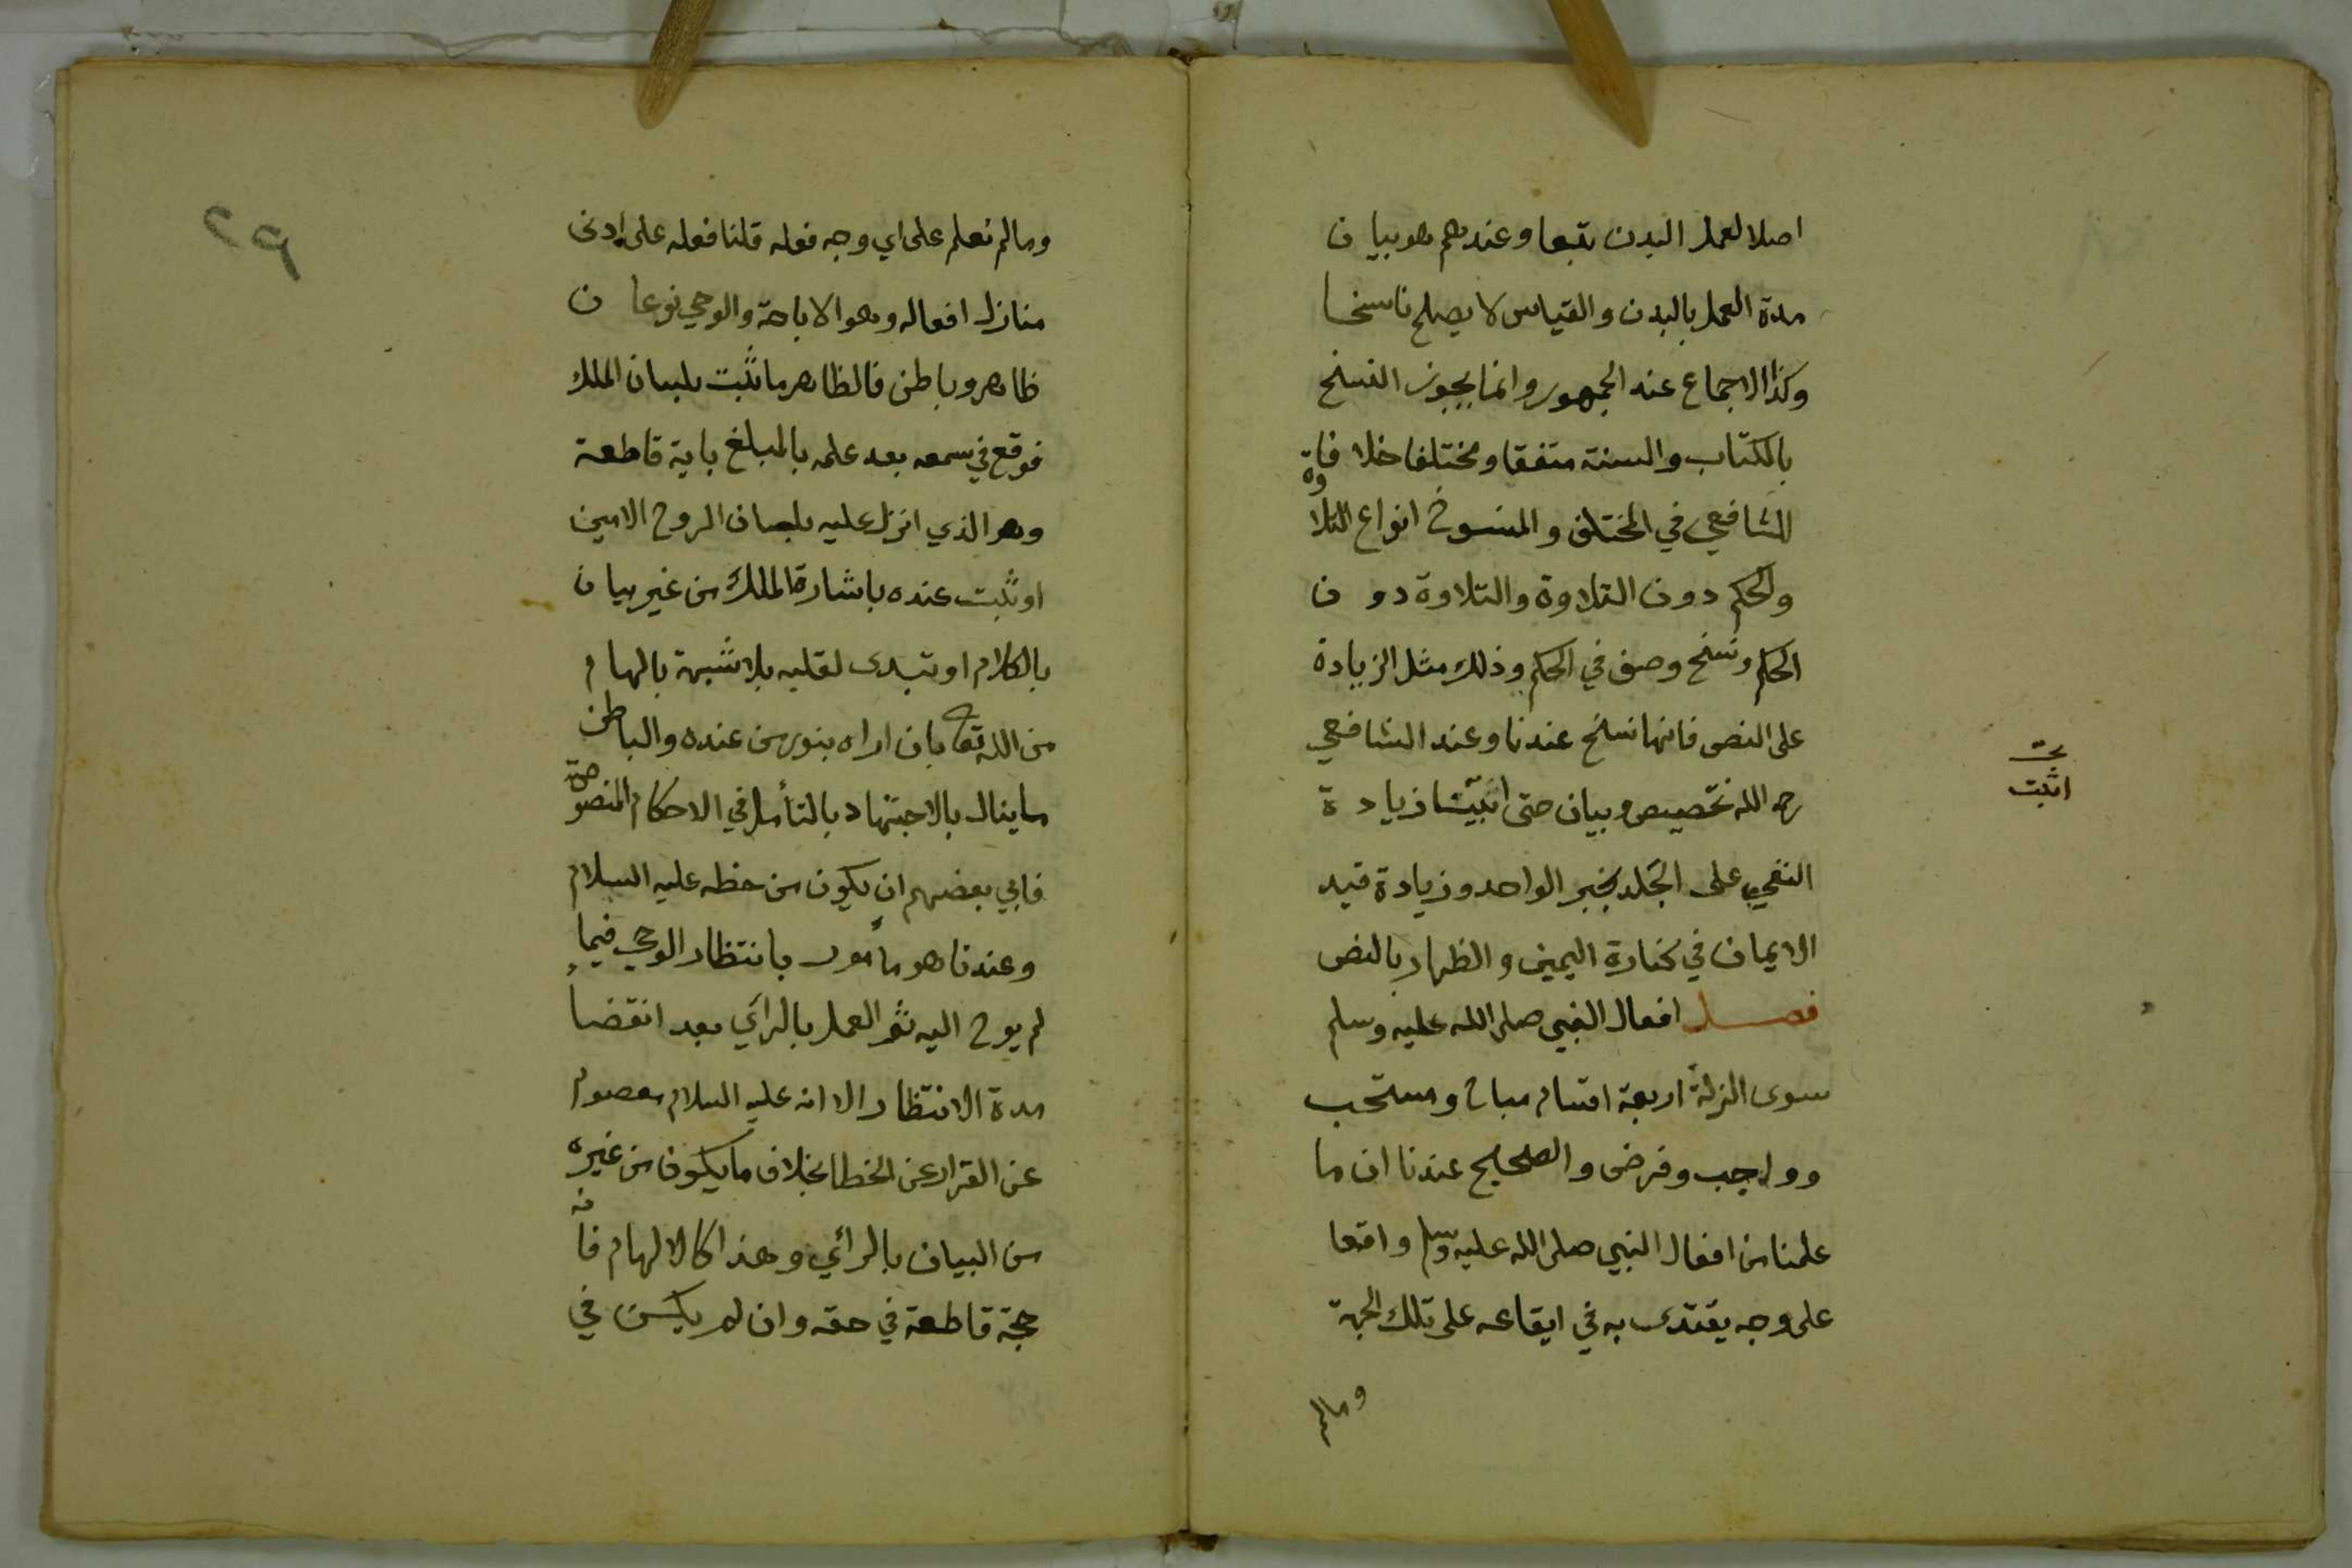 اصلا لعمل البدن تبعا وعندهم هو بيان
مدة العمل بالبدن والقياس لا يصلح ناسخا
وكذا الاجماع عند الجمهور وانما يجوز النسخ
بالكتاب والسنة متفقا ومختلفا خلافا
للشافعي في المختلف والمنسوخ انواع التلاوة
والحكم دون التلاوة والتلاوة دون
الحكم ونسخ وصف في الحكم وذلك مثل الزيادة
على النص فانها نسخ عندنا وعند الشافعي
رحمه الله تخصيص وبيان حتى اثبت زيادة
اثبت
النفي على الجلد بخبر الواحد وزيادة قيد
الايمان في كفارة اليمين والظهار بالنص
فصل افعال النبي صلى الله عليه وسلم
سوى الزلة اربعة اقسام مباح ومستحب
وواجب وفرض والصحيح عندنا ان ما
علمنا من افعال النبي صلى الله عليه وسلم واقعا
على وجه يقتدى به في ايقاعه على تلك الجهة
وما لم
٢٩
وما لم نعلم على اي وجه فعله قلنا فعله على ادنى
منازل افعاله وهو الاباحة والوحي نوعان
ظاهر وباطن فالظاهر ما ثبت بلسان الملك
فوقع في سمعه بعد علمه بالمبلغ باية قاطعة
وهو الذي انزل عليه بلسان الروح الامين
او ثبت عنده باشارة الملك من غير بيان
بالكلام او تبدى لقلبه بلا شبهة بالهام
من الله تعا بان اراه بنور من عنده والباطن
ما ينال بالاجتهاد بالتأمل في الاحكام المنصوصة
فابي بعضهم ان يكون من حظه عليه السلام
وعندنا هو مأمور بانتظار الوحي فيما
لم يوح اليه ثم العمل بالرأي بعد انقضاء
مدة الانتظار الا انه عليه السلام معصوم
عن القرار عن الخطا بخلاف ما يكون من غيره
من البيان بالرأي وهذا كالالهام فانه
حجة قاطعة في حقه وان لم يكن في